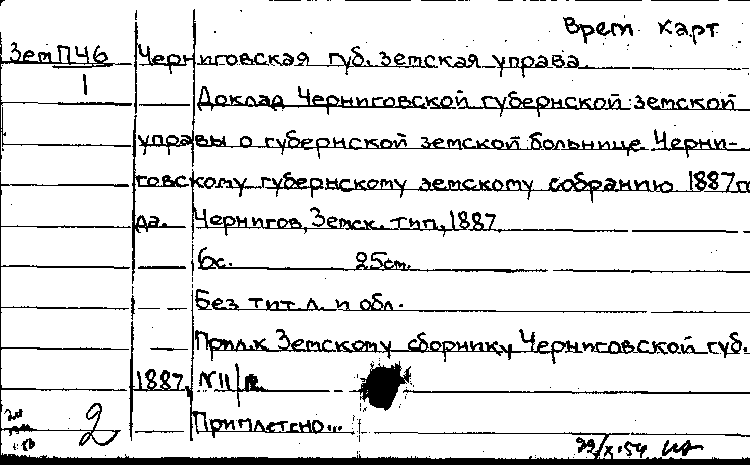 Врем карт
Зем П46 Черниговская губ. земская управа.
1
Доклад Черниговской губернской земской
управы о губернской земской больнице Черни-
говскому губернскому земскому собранию 1887 го
да. Чернигов, Земск. тип, 1887.
6с. 25см.
Без тит. л. и обл.
Прил. к Земскому сборнику Черниговской губ.
1887, N11/12
Приплетено...
2
29/X-54